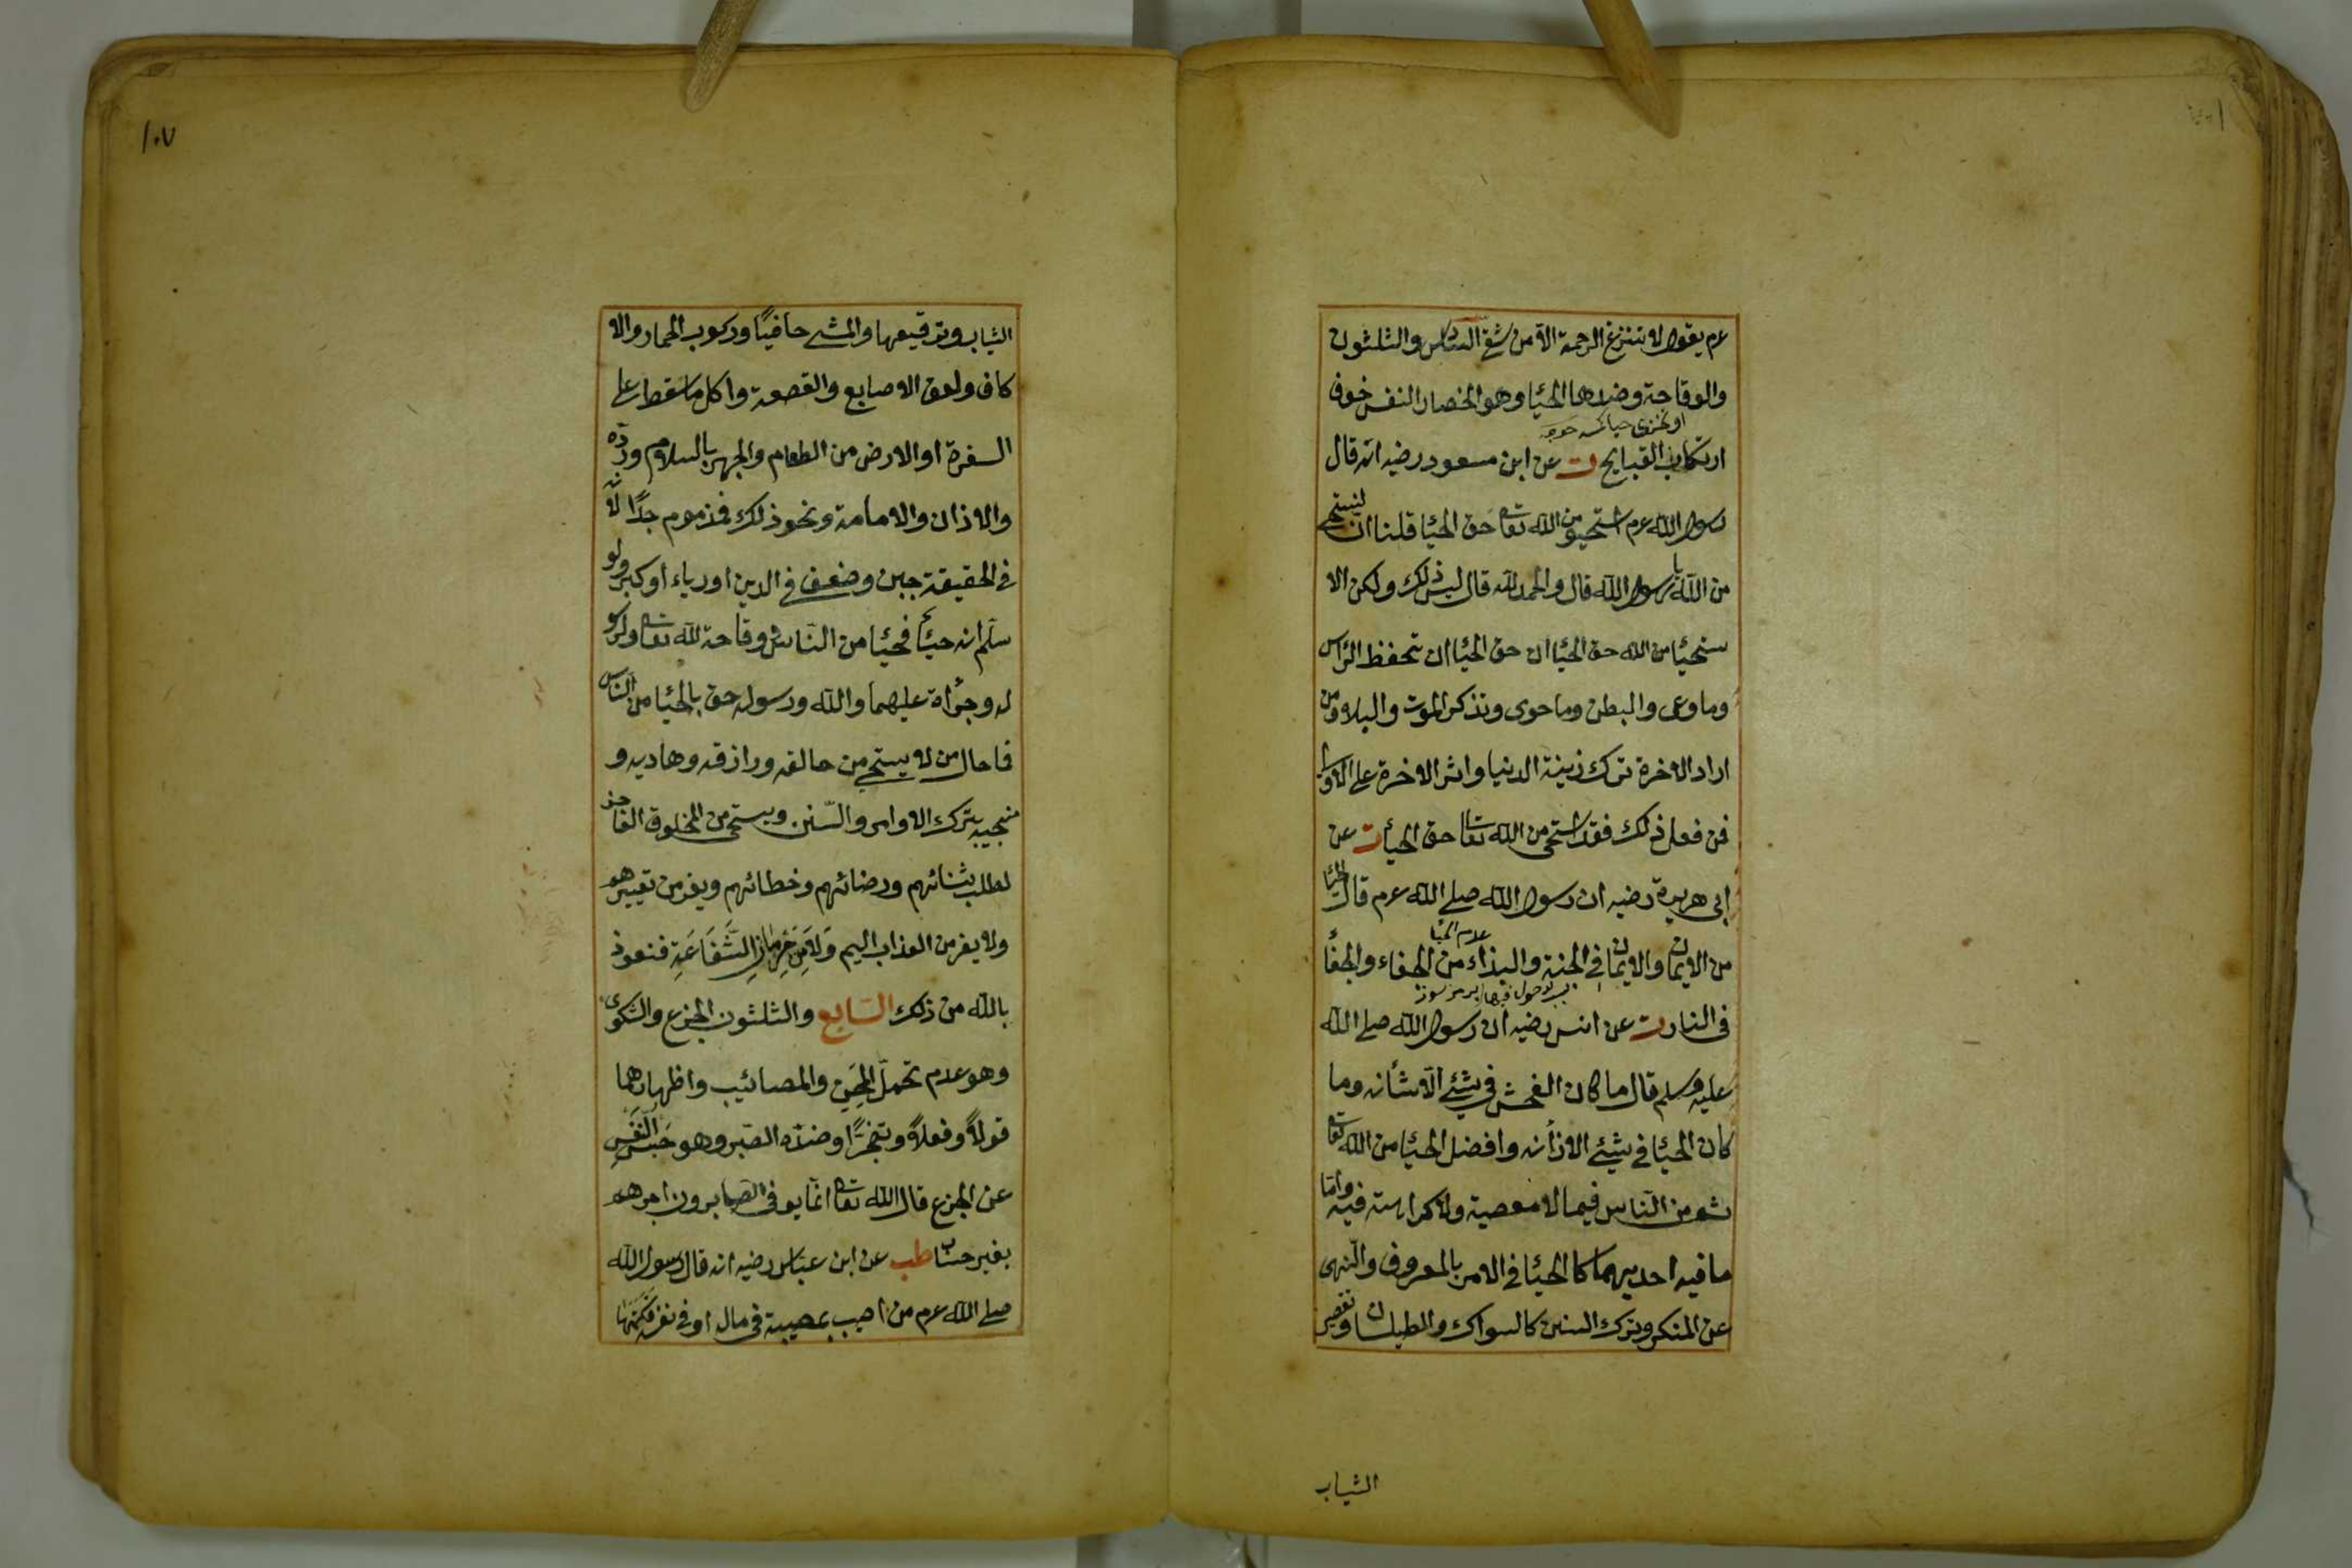 عم يقول لا تنزع الرحمة الا من شقى السادس والثلثون
والوقاحة وضدها الحيا وهو انحصار النفس خوف
ارتكاب القبايح ت عن ابن مسعود رضيه انه قال
رسول الله عم استحيوا من الله تعا حق الحيا قلنا انا لنستحى
من الله يا رسول الله قال والحمد لله قال ليس ذلك ولكن الا
ستحيا من الله حق الحيا ان حق الحيا ان تحفظ الرأس
وما وعى والبطن وما حوى وتذكر الموت والبلاء ومن
اراد الاخرة ترك زينة الدنيا واثر الاخرة على الاولى
فمن فعل ذلك فقد استحى من الله تعا حق الحيا ت عن
ابى هريرة رضيه ان رسول الله صلى الله عم قال الحيا
من الايمان والايمان فى الجنة والبذاء من الجفاء والجفا
عدم الحيا
فى النار ت عن انس رضيه ان رسول الله صلى الله
عليه وسلم قال ما كان الفحش فى شئ الا شانه وما
كان الحيا فى شئ الا زانه وافضل الحيا من الله تعا
ثم من الناس فيما لا معصية ولا كراهة فيه واما
ما فيه احديهما كالحيا فى الامر بالمعروف والنهى
عن المنكر وترك السنن كالسواك والطيلسان وتقصير
الثياب
١٠٧
الثياب وترقيعها والمشى حافيًا وركوب الحمار والا
كاف ولعق الاصابع والقصعة واكل ما سقط على
السفرة او الارض من الطعام والجهر بالسلام ورده
والاذان والامامة ونحو ذلك فمذموم جدًا لانه
فى الحقيقة جبن وضعف فى الدين او رياء او كبر ولو
سلم انه حيا فحيا من الناس وقاحة لله تعا ولرسو
له وجرأة عليهما والله ورسوله حق بالحيا من الناس
فما حال من لا يستحى من خالقه ورازقه وهاديه و
منجيه بترك الاوامر والسنن ويستحى من المخلوق العاجز
لطلب ثنائهم ورضائهم وخطائهم ويفر من تعييرهم
ولا يفر من العذاب اليم ولا من حرمان الشفاعة فنعوذ
بالله من ذلك السابع والثلثون الجزع والشكوى
وهو عدم تحمل المحن والمصائب واظهارهما
قولًا وفعلًا وتضجرًا وضده الصبر وهو حبس النفس
عن الجزع قال الله تعا انما يوفى الصابرون اجرهم
بغير حساب طب عن ابن عباس رضيه انه قال رسول الله
صلى الله عم من اصيب بمصيبة فى ماله او فى نفسه فكتمها